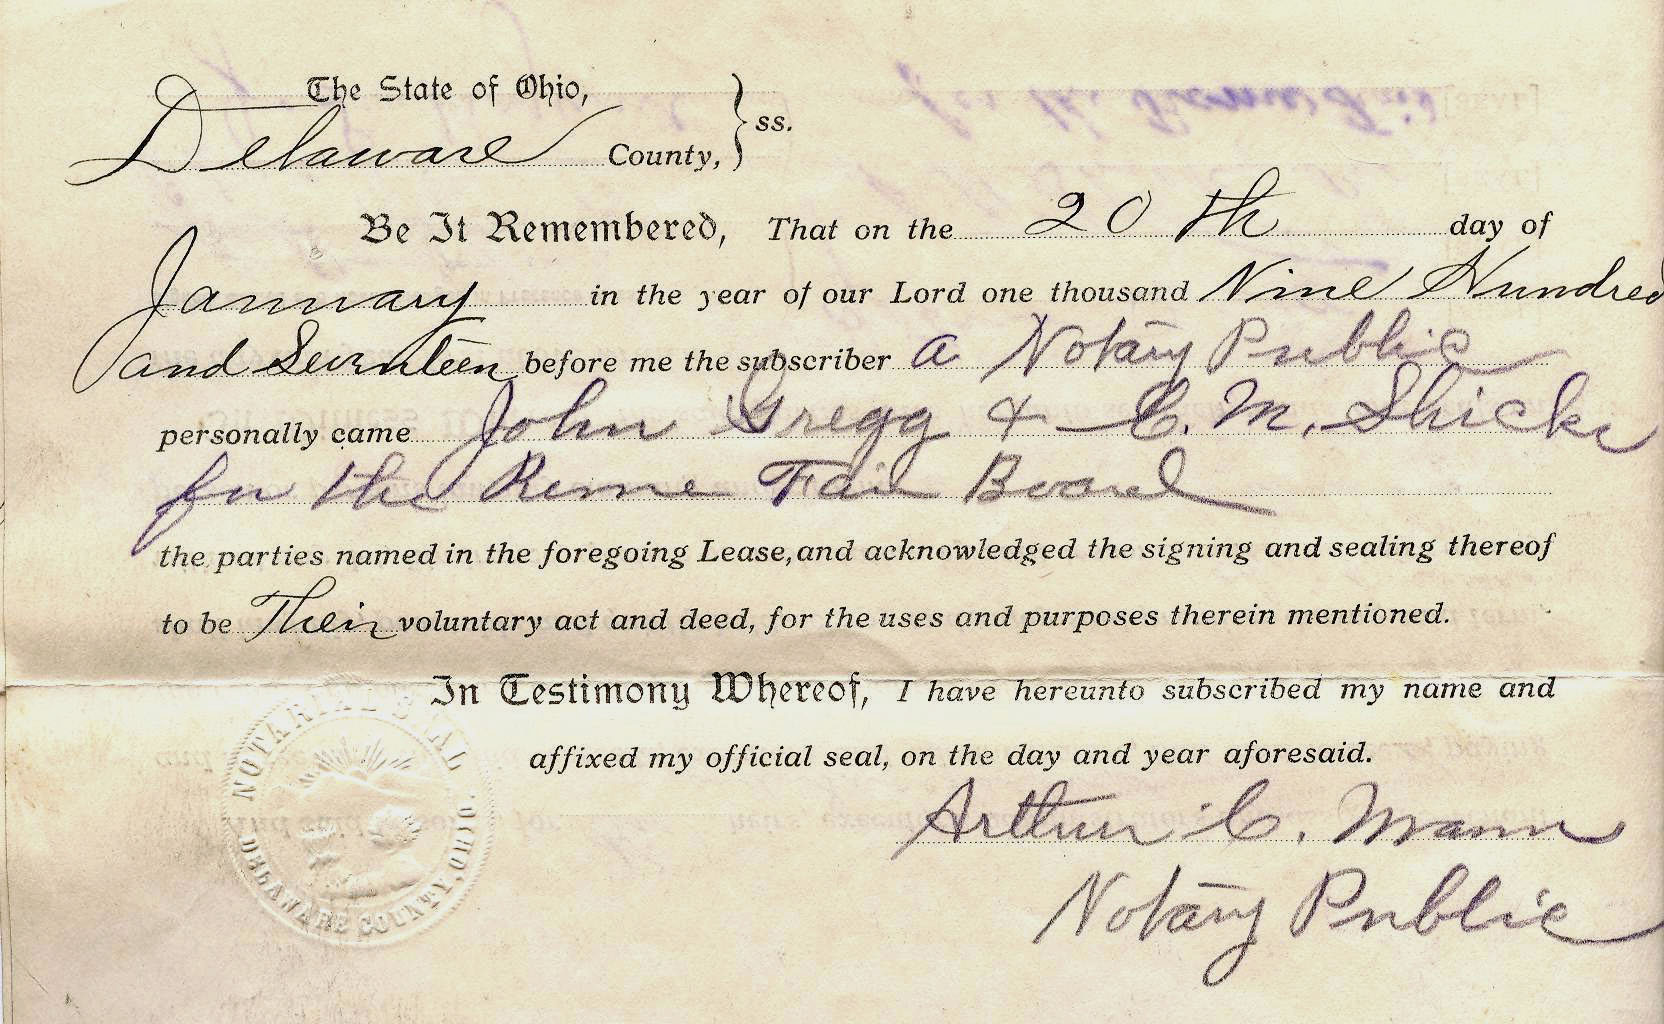 The State of Ohio,
Delaware County, } ss.
Be It Remembered, That on the 20 th day of
January in the year of our Lord one thousand Nine Hundred
and Seventeen before me the subscriber a Notary Public
personally came John Gregg & C. M. Shicks
for the Rome Fair Board
the parties named in the foregoing Lease, and acknowledged the signing and sealing thereof
to be Their voluntary act and deed, for the uses and purposes therein mentioned.
In Testimony Whereof, I have hereunto subscribed my name and
affixed my official seal, on the day and year aforesaid.
NOTARIAL SEAL
DELAWARE COUNTY, OHIO.
Arthur C. Mann
Notary Public